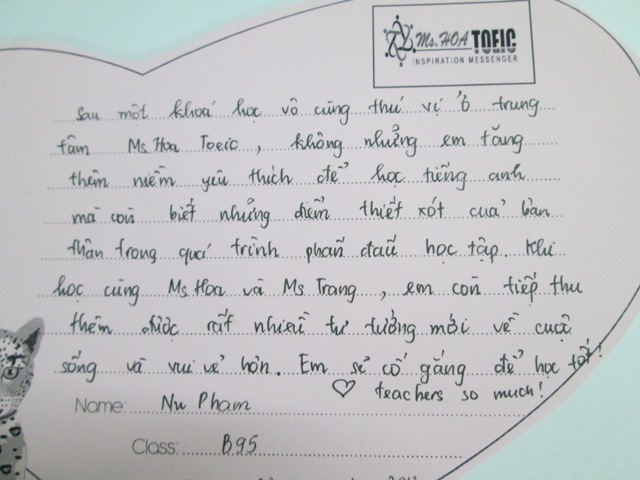 Ms. HOA TOEIC
INSPIRATION MESSENGER
Sau một khoá học vô cùng thú vị ở trung
tâm Ms Hoa Toeic, không những em tăng
thêm niềm yêu thích để học tiếng anh
mà còn biết những điểm thiết xót của bản
thân trong quá trình phấn đấu học tập. Khi
học cùng Ms Hoa và Ms Trang, em còn tiếp thu
thêm được rất nhiều tư tưởng mới về cuộc
sống và vui vẻ hơn. Em sẽ cố gắng để học tốt!
♡ teachers so much!
Name: Nu Pham
Class: B95